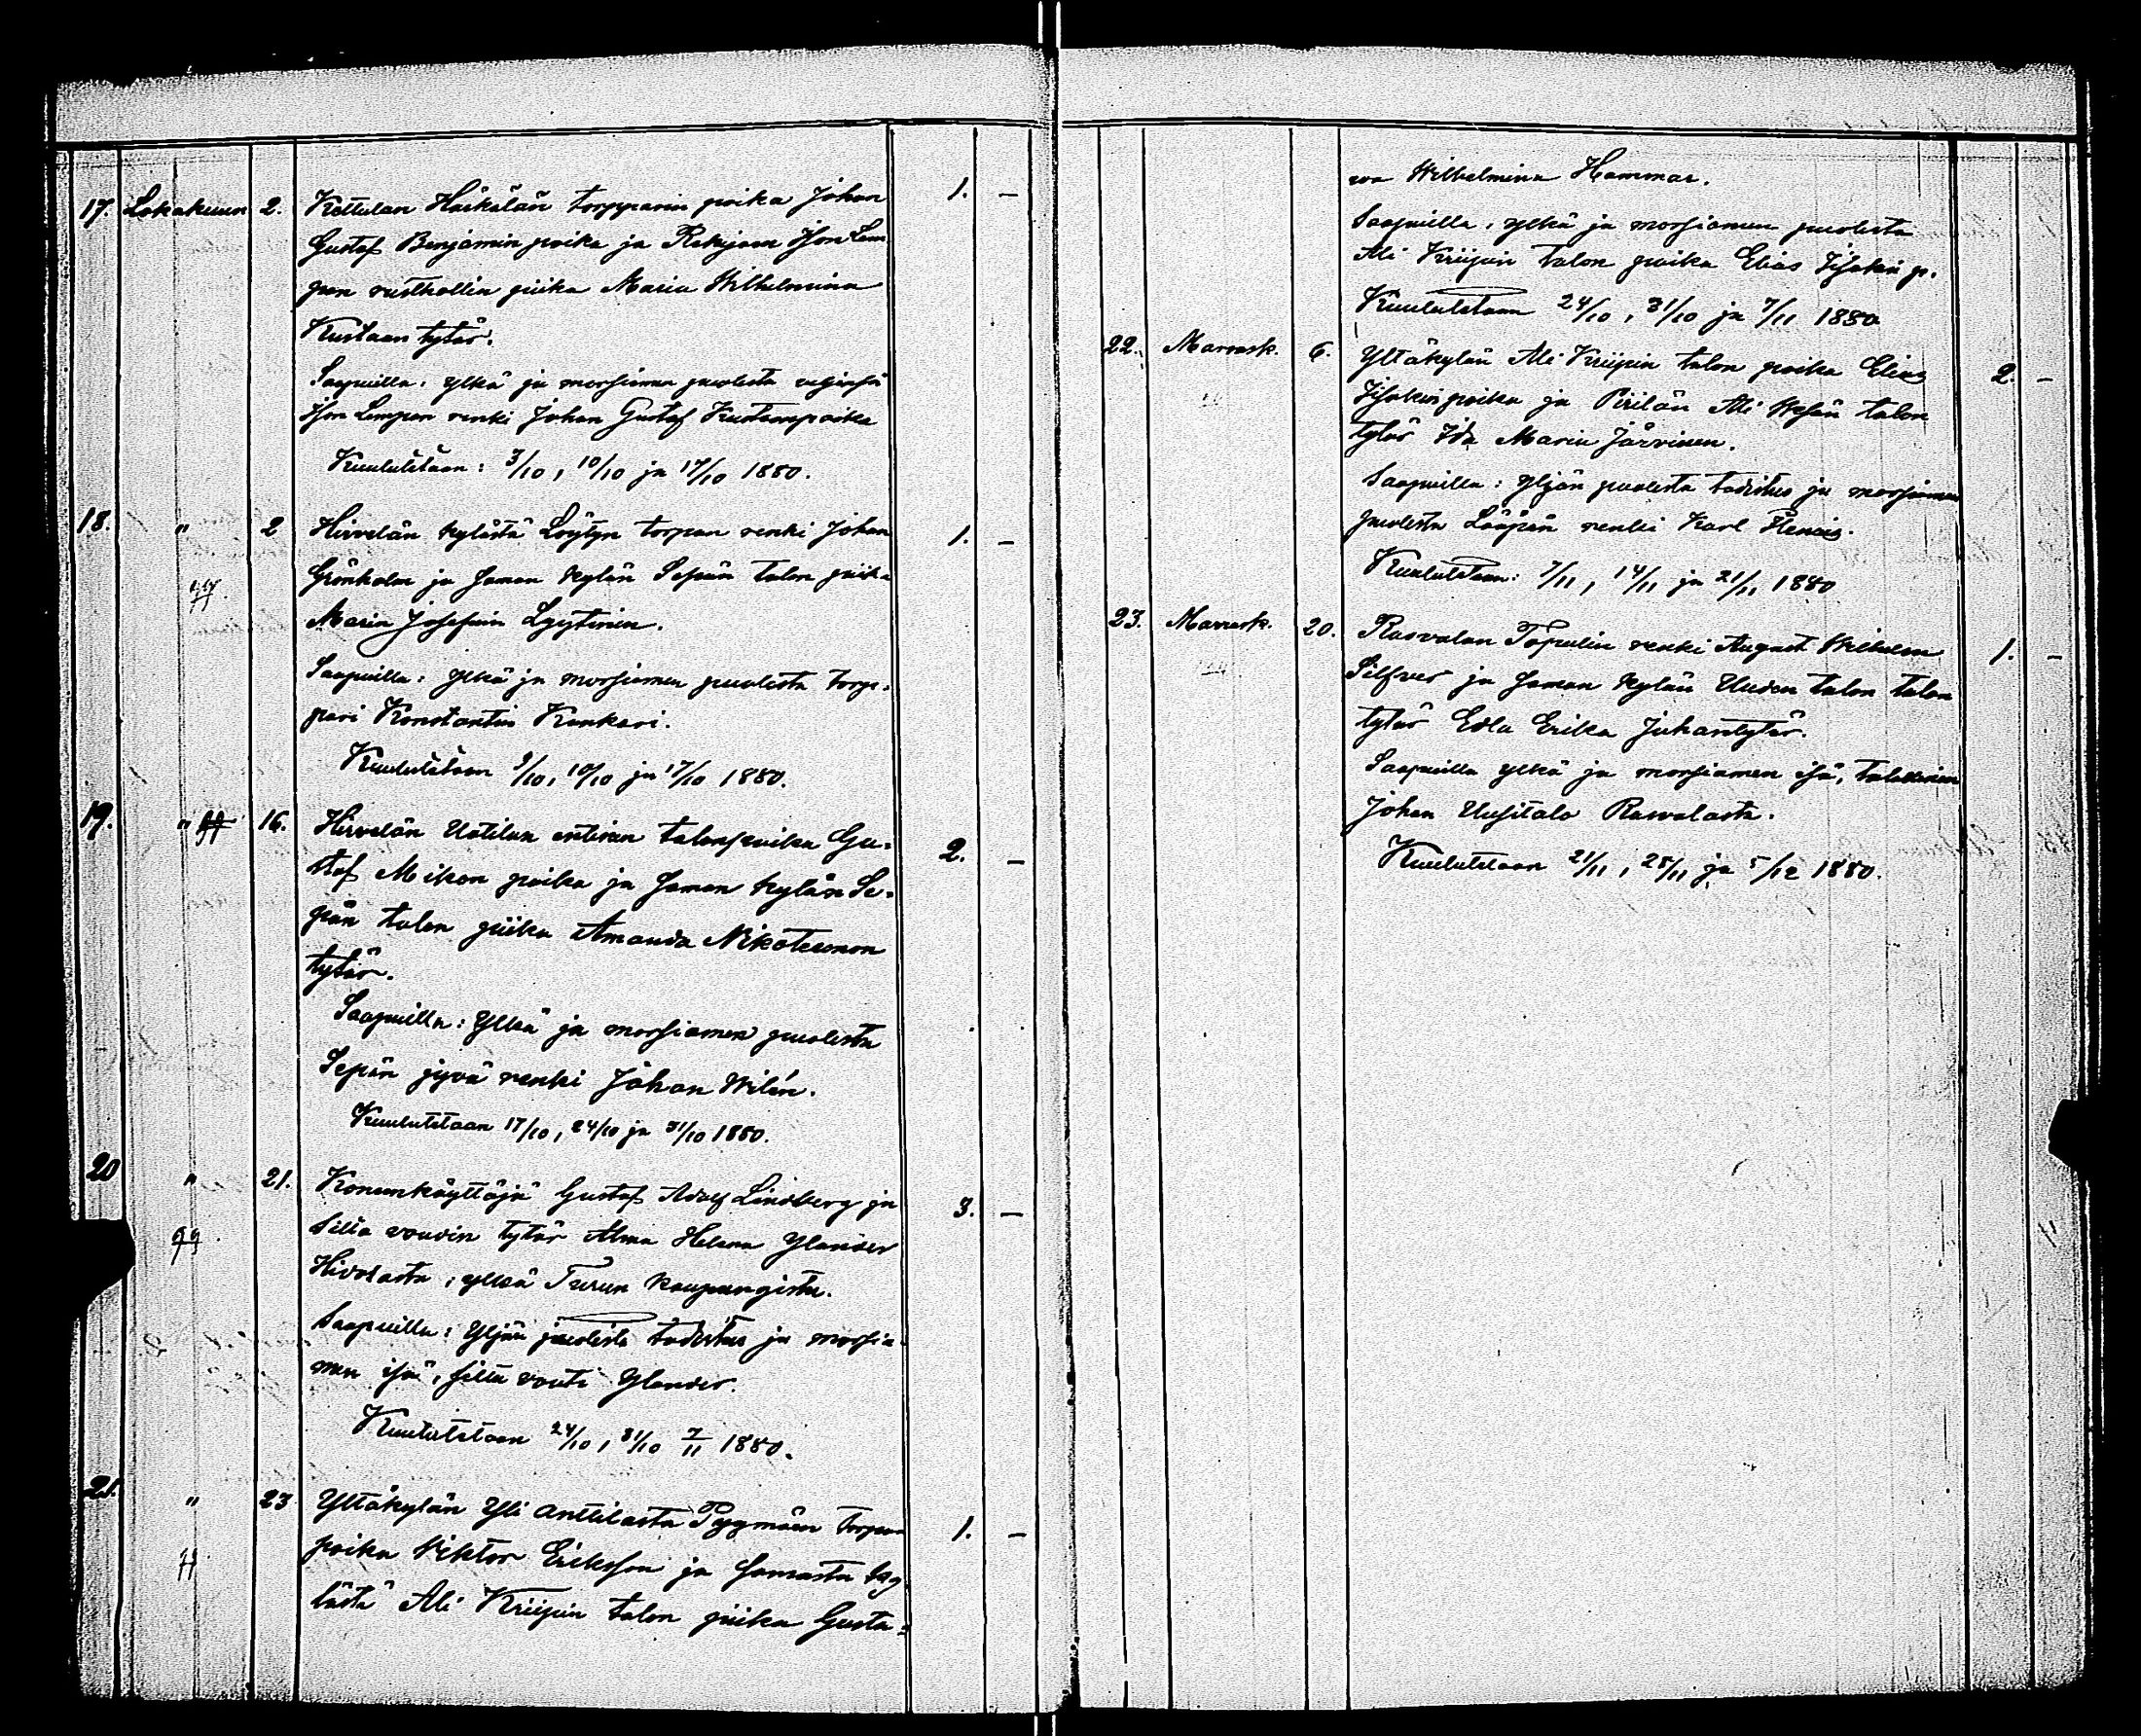 17. Lokakuun 2. Kettulan Härkälän torpparin poika Johan 1. —
Gustaf Benjamin poika ja Rekijoen Ison Lem
pen rusthollin piika Maria Wilhelmina
Kustaan tytär.
Saapuilla: ylkä ja morsiamen puolesta
Ison Lempen renki Johan Gustaf Kustaanpoika
Kuulutetaan: 3/10, 10/10 ja 17/10 1880.
18. " 2 Hirvelän kylästä Löytyn torpan renki Johan 1. —
Grönholm ja saman kylän Sepän talon piika
Maria Josefiin Lyytinen.
Saapuilla: ylkä ja morsiamen puolesta torp-
pari Konstantin Kankari.
Kuulutetaan 3/10, 10/10 ja 17/10 1880.
19. " 16. Hirvelän Uotilan entisen talonpoika Gu- 2. —
staf Mikon poika ja saman kylän Se-
pän talon piika Amanda Nikoteemon
tytär.
Saapuilla: Ylkä ja morsiamen puolesta
Sepän jyvä renki Johan Wilén.
Kuulutetaan 17/10, 24/10 ja 31/10 1880.
20 " 21. Konunkäyttäjä Gustaf Adolf Lindberg ja 3. —
silta voudin tytär Alma Helena Ylander
Hirvelästä, ylkä Turun kaupungista.
Saapuilla: Yljän puolesta todistus ja morsia-
men isä, silta vouti Ylander.
Kuulutetaan 24/10, 31/10 7/11 1880.
21. " 23 Yltäkylän Yli Anttilasta Pyymäen torpan 1. —
poika Viktor Eriksson ja samasta ky
lästä Ali Kriipin talon piika Gusta-
va Wilhelmina Hammar.
Saapuilla: ylkä ja morsiamen puolesta
Ali Kriipin talon poika Elias Iisakin p.
Kuulutetaan 24/10, 31/10 ja 7/11 1880
22. Marrask. 6. Yltäkylän Ali Kriipin talon poika Elias 2. —
Iisakin poika ja Pirilän Ali talon
tytär Ida Maria Järvinen.
Saapuilla: Yljän puolesta todistus ja morsiamen
puolesta Lääpän renki Karl Flenois.
Kuulutetaan: 7/11, 14/11 ja 21/11 1880
23. Marrask. 20. Rasvalan Töpulin renki August Wilhelm 1. —
Silfver ja saman kylän Uuden talon talon
tytär Edla Erika Juhantytär.
Saapuilla ylkä ja morsiamen isä, talollinen
Johan Uusitalo Rasvalasta.
Kuulutetaan 21/11, 28/11 ja 5/12 1880.